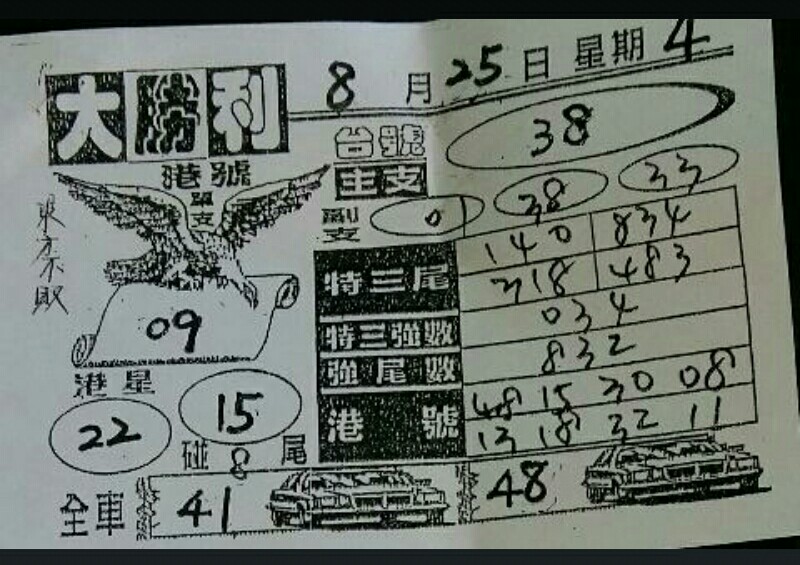 8月25日 星期4
大勝利
台號 38
港號
單支
主支
副支 01 38 33
東方不敗
特三尾 140 834
318 483
09
特三強數 034
強尾數 832
港星
22 15
港號 48 15 30 08
13 18 32 11
碰8尾
全車 41 48